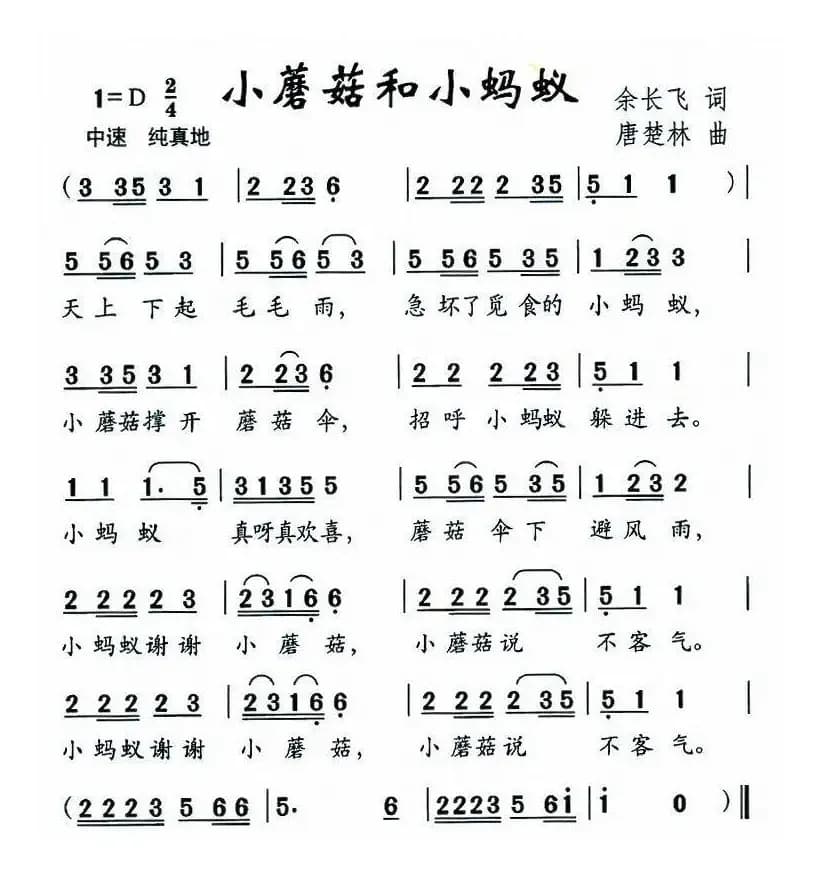 小蘑菇和小蚂蚁
1=D 2/4
余长飞 词
中速 纯真地
唐楚林 曲
(3 35 3 1 | 2 23 6̣ | 2 22 2 35 | 5̣ 1 1 )|
5 56 5 3 | 5 56 5 3 | 5 56 5 35 | 1 23 3 |
天上 下起 毛毛 雨, 急坏了觅食的 小蚂蚁,
3 35 3 1 | 2 23 6̣ | 2 2 2 23 | 5̣ 1 1 |
小蘑菇撑开 蘑菇 伞, 招呼小蚂蚁 躲进去。
1 1 1. 5̣ | 3135 5 | 5 56 5 35 | 1 23 2 |
小蚂 蚁 真呀真欢喜, 蘑菇 伞下 避风雨,
2 22 2 3 | 2316̣ 6̣ | 2 22 2 35 | 5̣ 1 1 |
小蚂蚁谢谢 小蘑菇, 小蘑菇说 不客气。
2 22 2 3 | 2316̣ 6̣ | 2 22 2 35 | 5̣ 1 1 |
小蚂蚁谢谢 小蘑菇, 小蘑菇说 不客气。
(2223 5 66 | 5. 6 | 2223 5 6i̇ | i̇ 0 )‖